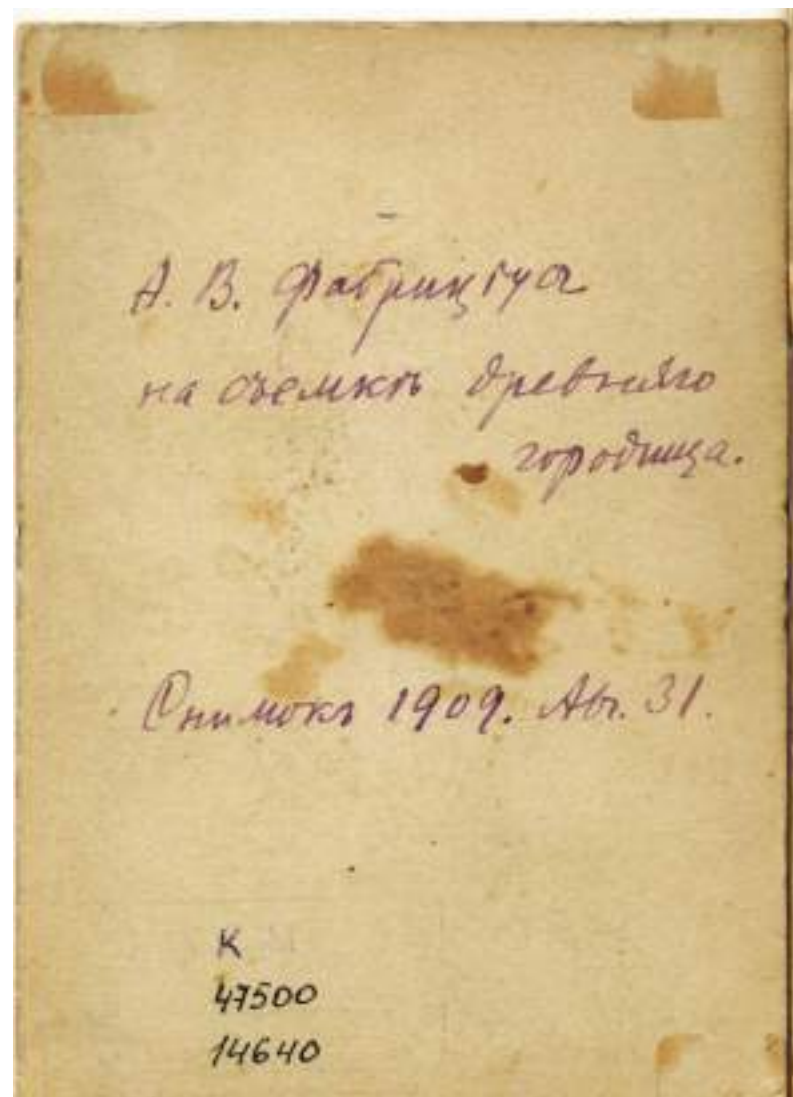 А. В. Фабриціуса
на съемкѣ древняго
городища.
Снимокъ 1909. Авг. 31.
К
47500
14640